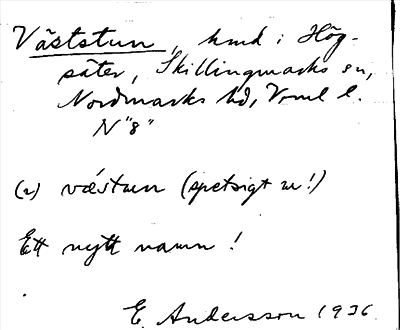 Väststun, hmd i Hög-
säter, Skillingmarks sn,
Nordmarks hd, Vrml l.
N "8"
(a) vǽstun (spetsigt u!)
Ett nytt namn!
E. Andersson 1936